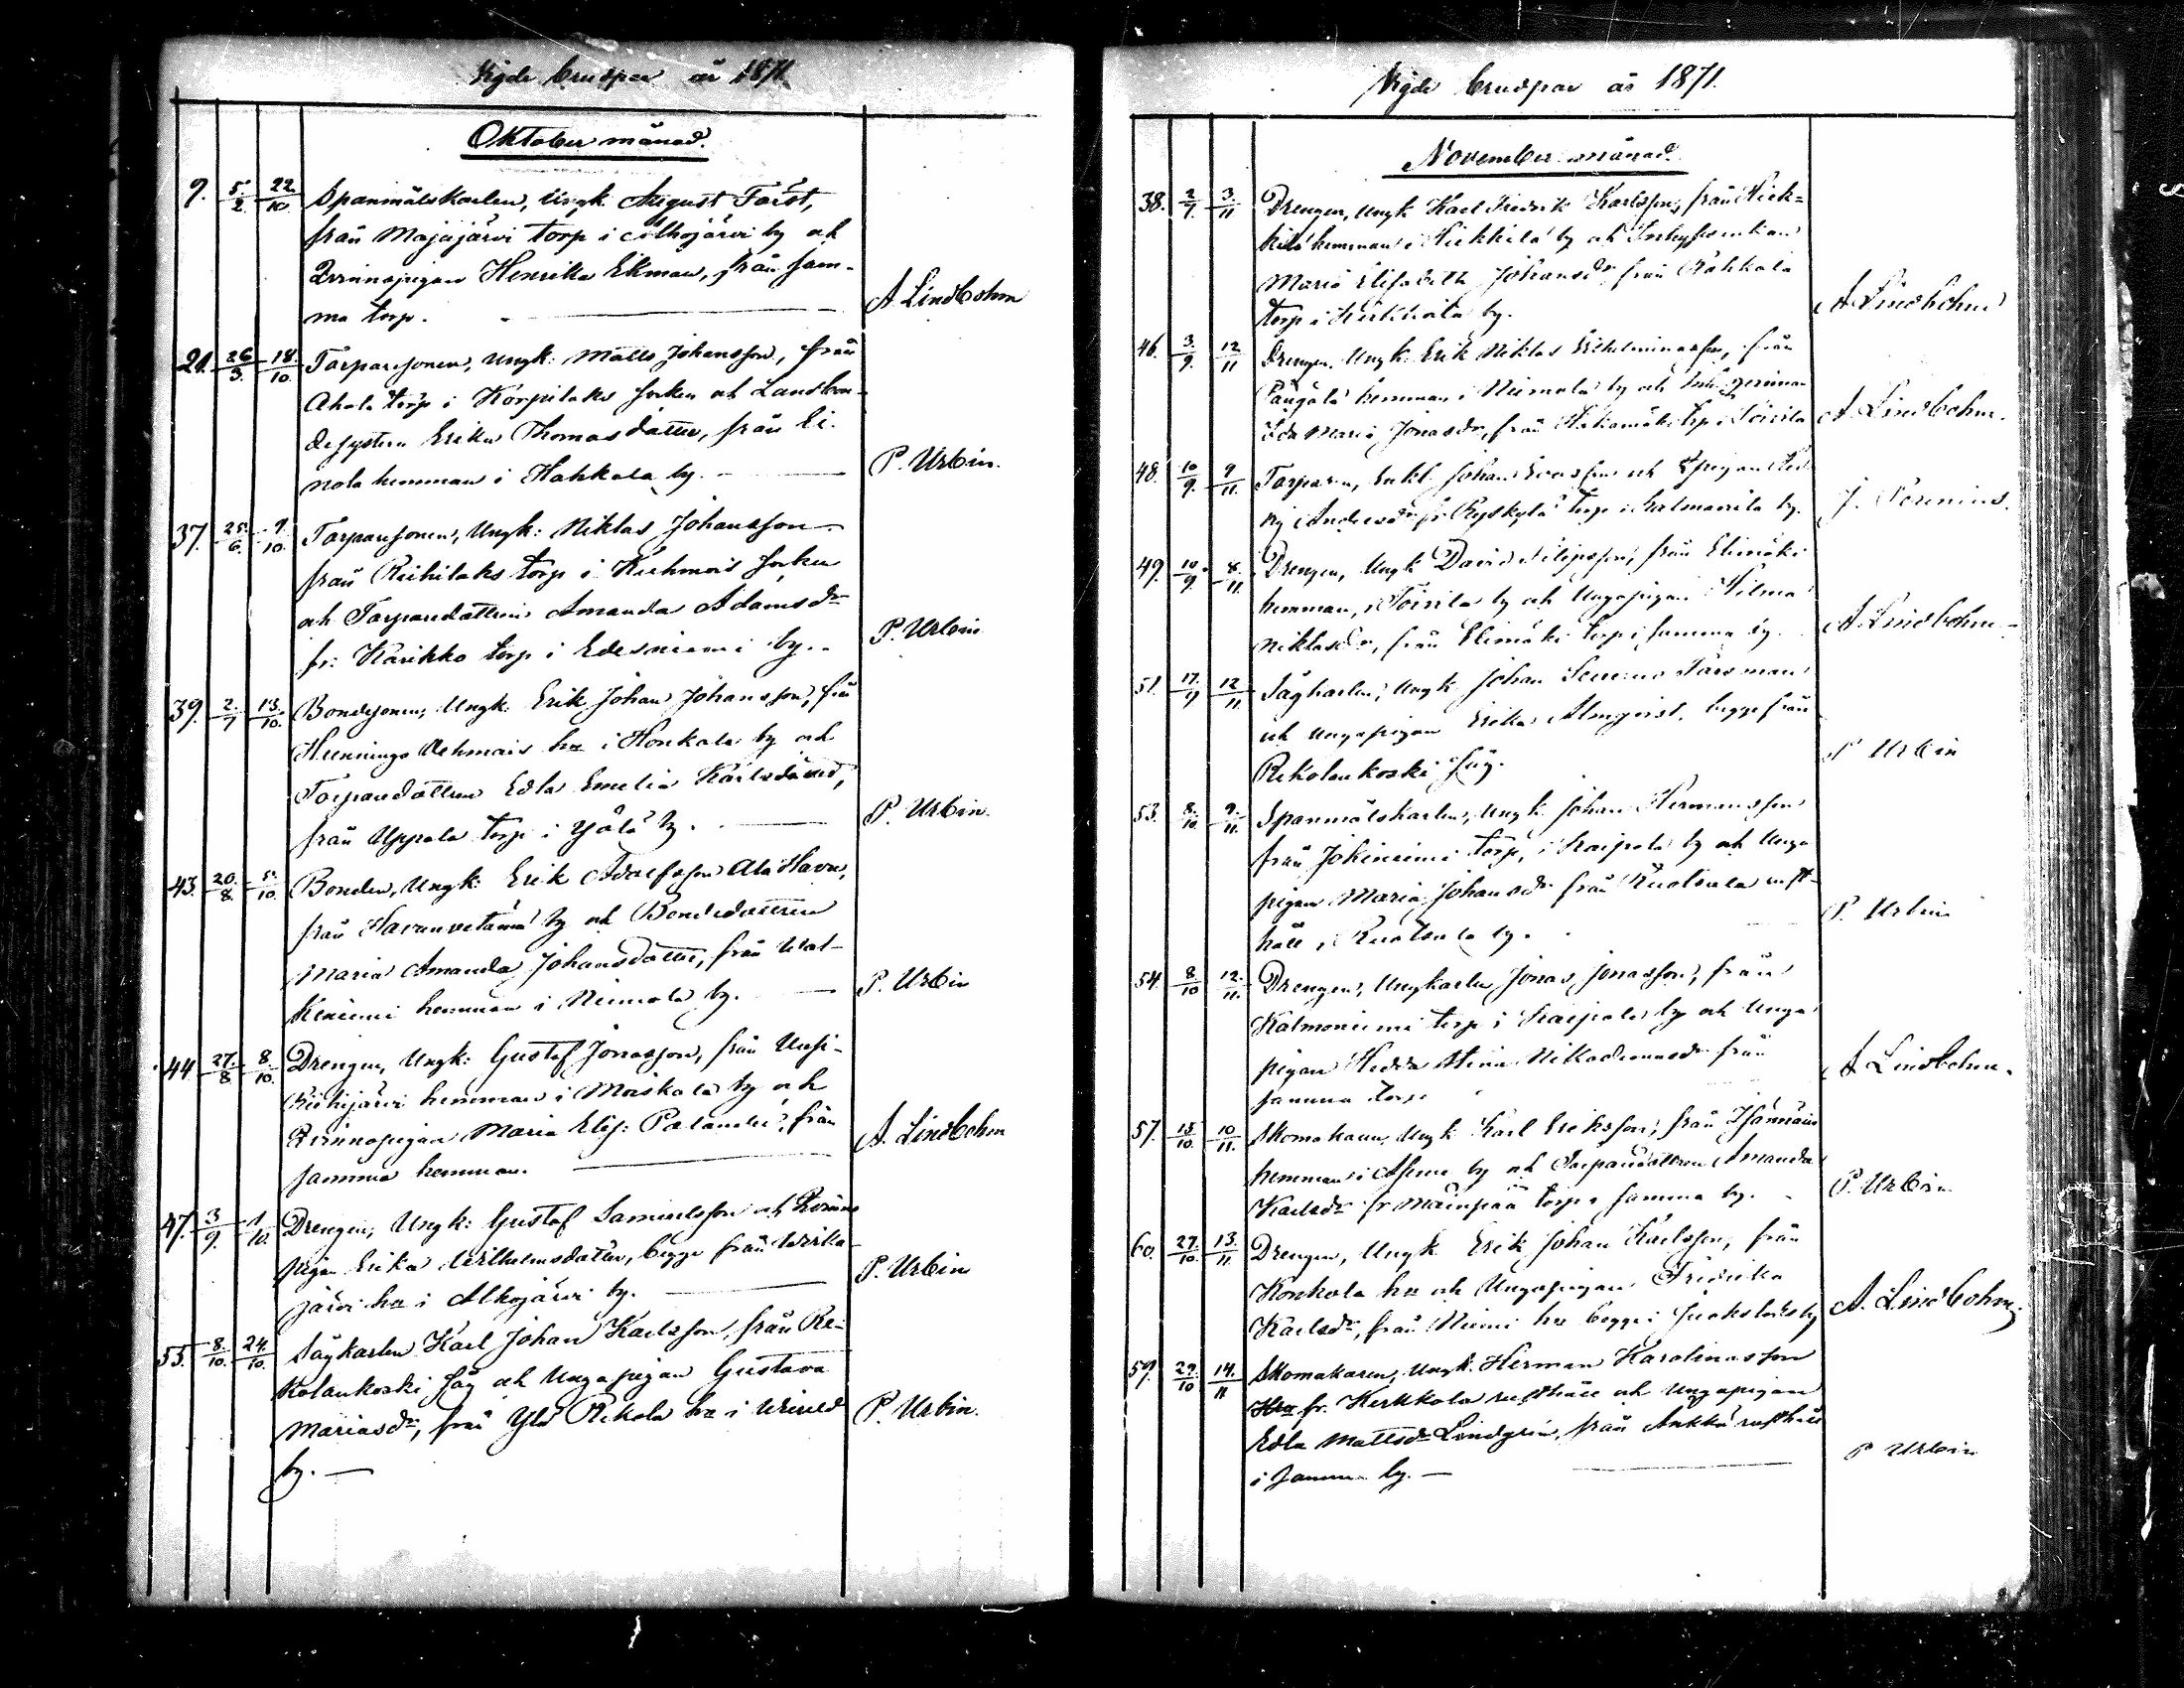 Vigde brudpar år 1871.
Oktober månad.
9. 5/2. 22/10. Spanmålskarlen, Ungk. August Torst,
från Majajärvi torp i Alhojärvi by och
Qvinnspigan Henrika Ekman, från sam-
ma torp. A Lindbohm
21. 26/3. 18/10. Torparsonen, Ungk: Matts Johansson, från
Ahola torp i Korpilaks socken och Landbon-
desystern Erika Thomasdatter, från Ei-
nola hemman i Hahkala by. P. Urbin.
37. 25/6. 9/10. Torparsonen, Ungk: Niklas Johansson
från Riihilaks torp i Kuhmois socken
och Torparedottren Amanda Adamsdr
fr: Karikko torp i Edesniemi by. P. Urbin
39. 2/7 13/10. Bondesonen, Ungk: Erik Johan Johansson, från
Hunnings Uehmais hn i Honkala by och
Torparedottren Edla Emelia Karlsdotter,
från Uppala torp i Yölä by. P. Urbin.
43. 20/8. 5/10. Bonden, Ungk: Erik Adolfsson Ala Havu,
från Havunvetämä by och Bondedottren
Maria Amanda Johansdatter, från Wal-
keniemi hemman i Niemola by. P. Urbin
44 27/8 8/10. Drengen, Ungk: Gustaf Jonasson, från Uusi-
Riihijärvi hemman i Maiskala by och
Qvinnspigan Maria Elis: Palander, från
samma hemman. A. Lindbohm
47. 3/9. 1/10. Drengen, Ungk: Gustaf Samuelsson och Qvinns
pigan Erika Wilhelmsdatter, begge från Werika-
järvi hn i Alhojärvi by. P. Urbin
55. 8/10. 24/10. Sågkarlen Karl Johan Karlsson, från Re-
kolankoski såg och Ungapigan Gustava
Mariasdr, från Ylä Rekola hn i
by. P. Urbin.
Vigde brudpar år 1871.
November månad.
38. 2/7. 3/11 Drengen, Ungk Karl Fredrik Karlsson, från Hiek-
kilä hemman i Hiekkilä by och
Maria Elisabeth Johansdr från Rahkala
torp i by. A. Lindbohm
46. 3/9. 12/11 Drengen, Ungk: Erik Niklas Wilhelminasson, från
hemman i Niemola by och
Ida Maria Jonasdr, från torp i Toivila A. Lindbohm.
48. 10/9. 9/11. Torparen, Enkl. Johan och pigan
Andersdr fr torp i by. J.
49. 10/9. 8/11. Drengen, Ungk David Filipsson, från Elimäki
hemman, i Toivila by och Ungapigan Wilma
Niklasdr, från Elimäki torp i samma by. A. Lindbohm
51. 17/9 12/11. Sågkarlen, Ungk Johan
och Ungapigan Erika Almqvist, begge från
Rekolankoski såg. P Urbin
53. 8/10. 9/11. Spanmålskarlen, Ungk Johan Hermansson
från Jokiniemi torp, i Kaipola by och Unga
pigan Maria Johansdr från Ruolsula rust-
håll i Ruolsula by. P. Urbin
54. 8/10 12/11. Drengen, Ungkarlen Jonas Jonasson, från
Kalmoniemi torp i Kaipola by och Unga
pigan Hedda Stina Nikodemusdr från
samma torp. A Lindbohm.
57. 15/10. 10/11. Skomakaren, Ungk: Karl Eriksson, från Isännäin
hemman i by och Torparedottren Amanda
Karlsdr fr Mäenpää torp i samma by. P. Urbin
60. 27/10. 13/11. Drengen, Ungk Erik Johan Karlsson, från
Konkola hn och Ungapigan Fredrika
Karlsdr, från Niemi hn begge i by A. Lindbohm.
59. 29/10 14/11 Skomakaren, Ungk. Herman Karolinasson
fr. Kerkkola rusthåll och Ungapigan
Edla Mattsdr Lindgren, från Ankka rusthåll
i samma by. P Urbin